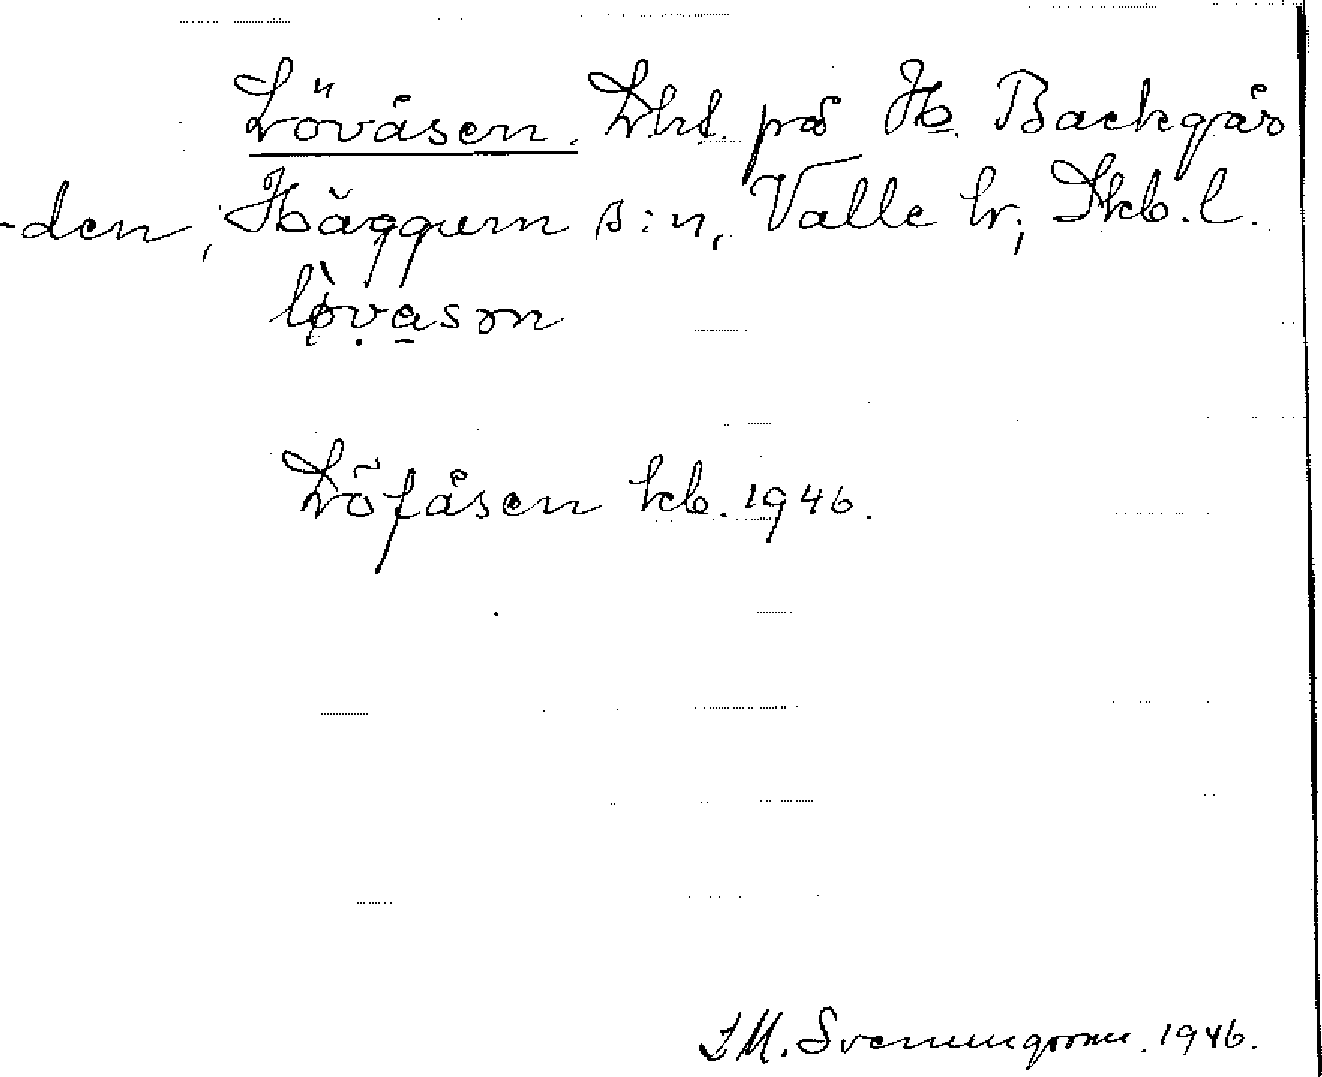 Lövåsen. Lht. på H. Backgår
-den, Häggum s:n, Valle hr, Skb. l.
lø̀vasɔn
Löfåsen kb. 1946.
I M. Svenningsson. 1946.